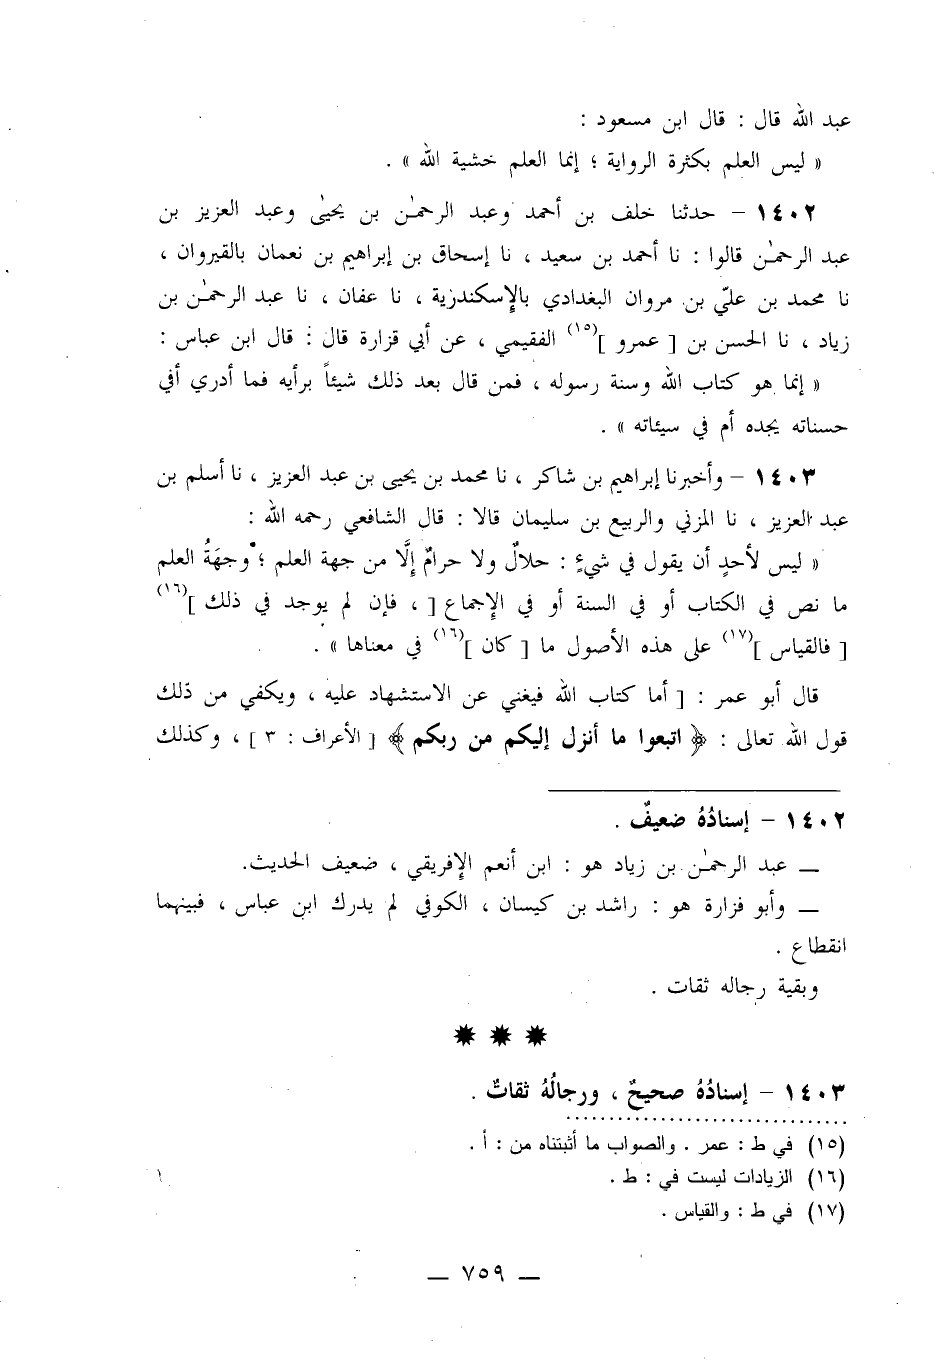 عبد الله قال : قال ابن مسعود :
« ليس العلم بكثرة الرواية ؛ إنما العلم خشية الله » .
١٤٠٢ – حدثنا خلف بن أحمد وعبد الرحمٰن بن يحيىٰ وعبد العزيز بن
عبد الرحمٰن قالوا : نا أحمد بن سعيد ، نا إسحاق بن إبراهيم بن نعمان بالقيروان ،
نا محمد بن عليّ بن مروان البغدادي بالإسكندرية ، نا عفان ، نا عبد الرحمٰن بن
زياد ، نا الحسن بن [ عمرو ](١٥) الفقيمي ، عن أبي قزارة قال : قال ابن عباس :
« إنما هو كتاب الله وسنة رسوله ، فمن قال بعد ذلك شيئاً برأيه فما أدري أفي
حسناته يجده أم في سيئاته » .
١٤٠٣ – وأخبرنا إبراهيم بن شاكر ، نا محمد بن يحيى بن عبد العزيز ، نا أسلم بن
عبد العزيز ، نا المزني والربيع بن سليمان قالا : قال الشافعي رحمه الله :
« ليس لأحدٍ أن يقول في شيءٍ : حلالٌ ولا حرامٌ إلَّا من جهة العلم ؛ وجهَةُ العلم
ما نص في الكتاب أو في السنة أو في الإجماع [ ، فإن لم يوجد في ذلك ](١٦)
[ فالقياس ](١٧) على هذه الأصول ما [ كان ](١٦) في معناها » .
قال أبو عمر : [ أما كتاب الله فيغني عن الاستشهاد عليه ، ويكفي من ذلك
قول الله تعالى : ﴿ اتبعوا ما أنزل إليكم من ربكم ﴾ [ الأعراف : ٣ ] ، وكذلك
١٤٠٢ – إسنادُهُ ضعيفٌ .
— عبد الرحمٰن بن زياد هو : ابن أنعم الإفريقي ، ضعيف الحديث.
— وأبو فزارة هو : راشد بن كيسان ، الكوفي لم يدرك ابن عباس ، فبينهما
انقطاع .
وبقية رجاله ثقات .
✹ ✹ ✹
١٤٠٣ – إسنادُهُ صحيحٌ ، ورجالُهُ ثقاتٌ .
(١٥) في ط : عمر . والصواب ما أثبتناه من : أ .
(١٦) الزيادات ليست في : ط .
(١٧) في ط : والقياس .
— ٧٥٩ —